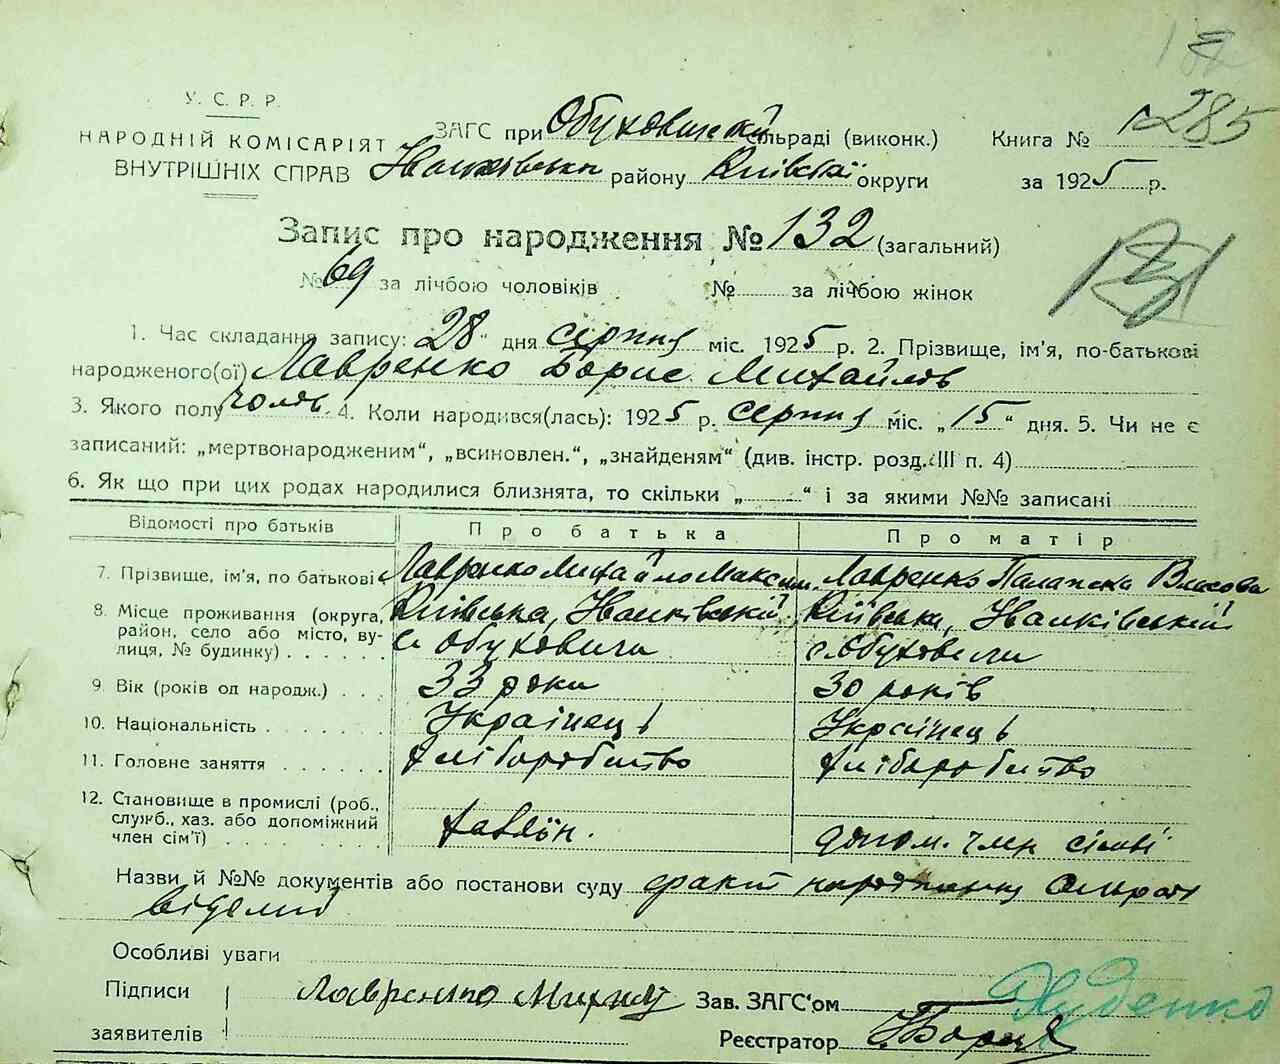 285
У. С. Р. Р.
НАРОДНІЙ КОМІСАРІЯТ
ВНУТРІШНІХ СПРАВ
ЗАГС при Обуховицькій сільраді (виконк.) Книга №
Іванківськ району Київськ округи за 1925 р.
Запис про народження № 132 (загальний)
№ 69 за лічбою чоловіків № за лічбою жінок
131
1. Час складання запису: 28" дня серпня міс. 1925 р. 2. Прізвище, ім'я, по-батькові
народженого(ої) Лавренко Борис Михайлов
3. Якого полу чолов. 4. Коли народився(лась): 1925 р. серпня міс. „15" дня. 5. Чи не є
записаний: „мертвонародженим", „всиновлен.", „знайденям" (див. інстр. розд. III п. 4)
6. Як що при цих родах народилися близнята, то скільки „ " і за якими №№ записані
Відомості про батьків Про батька Про матір
7. Прізвище, ім'я, по батькові Лавренко Михайло Максим. Лавренко Палажка Власова
8. Місце проживання (округа, район, село або місто, вулиця, № будинку) Київська, Іванківський, с Обуховичи Київська, Іванківський
9. Вік (років од народж.) 33 роки 30 років
10. Національність Українець Українець
11. Головне заняття хліборобство хліборобство
12. Становище в промислі (роб., служб., хаз. або допоміжний член сім'ї) хазяїн. допом. член сімві
Назви й №№ документів або постанови суду факт народження
Особливі уваги
Підписи
заявителів
Лавренко
Зав. ЗАГС'ом
Реєстратор